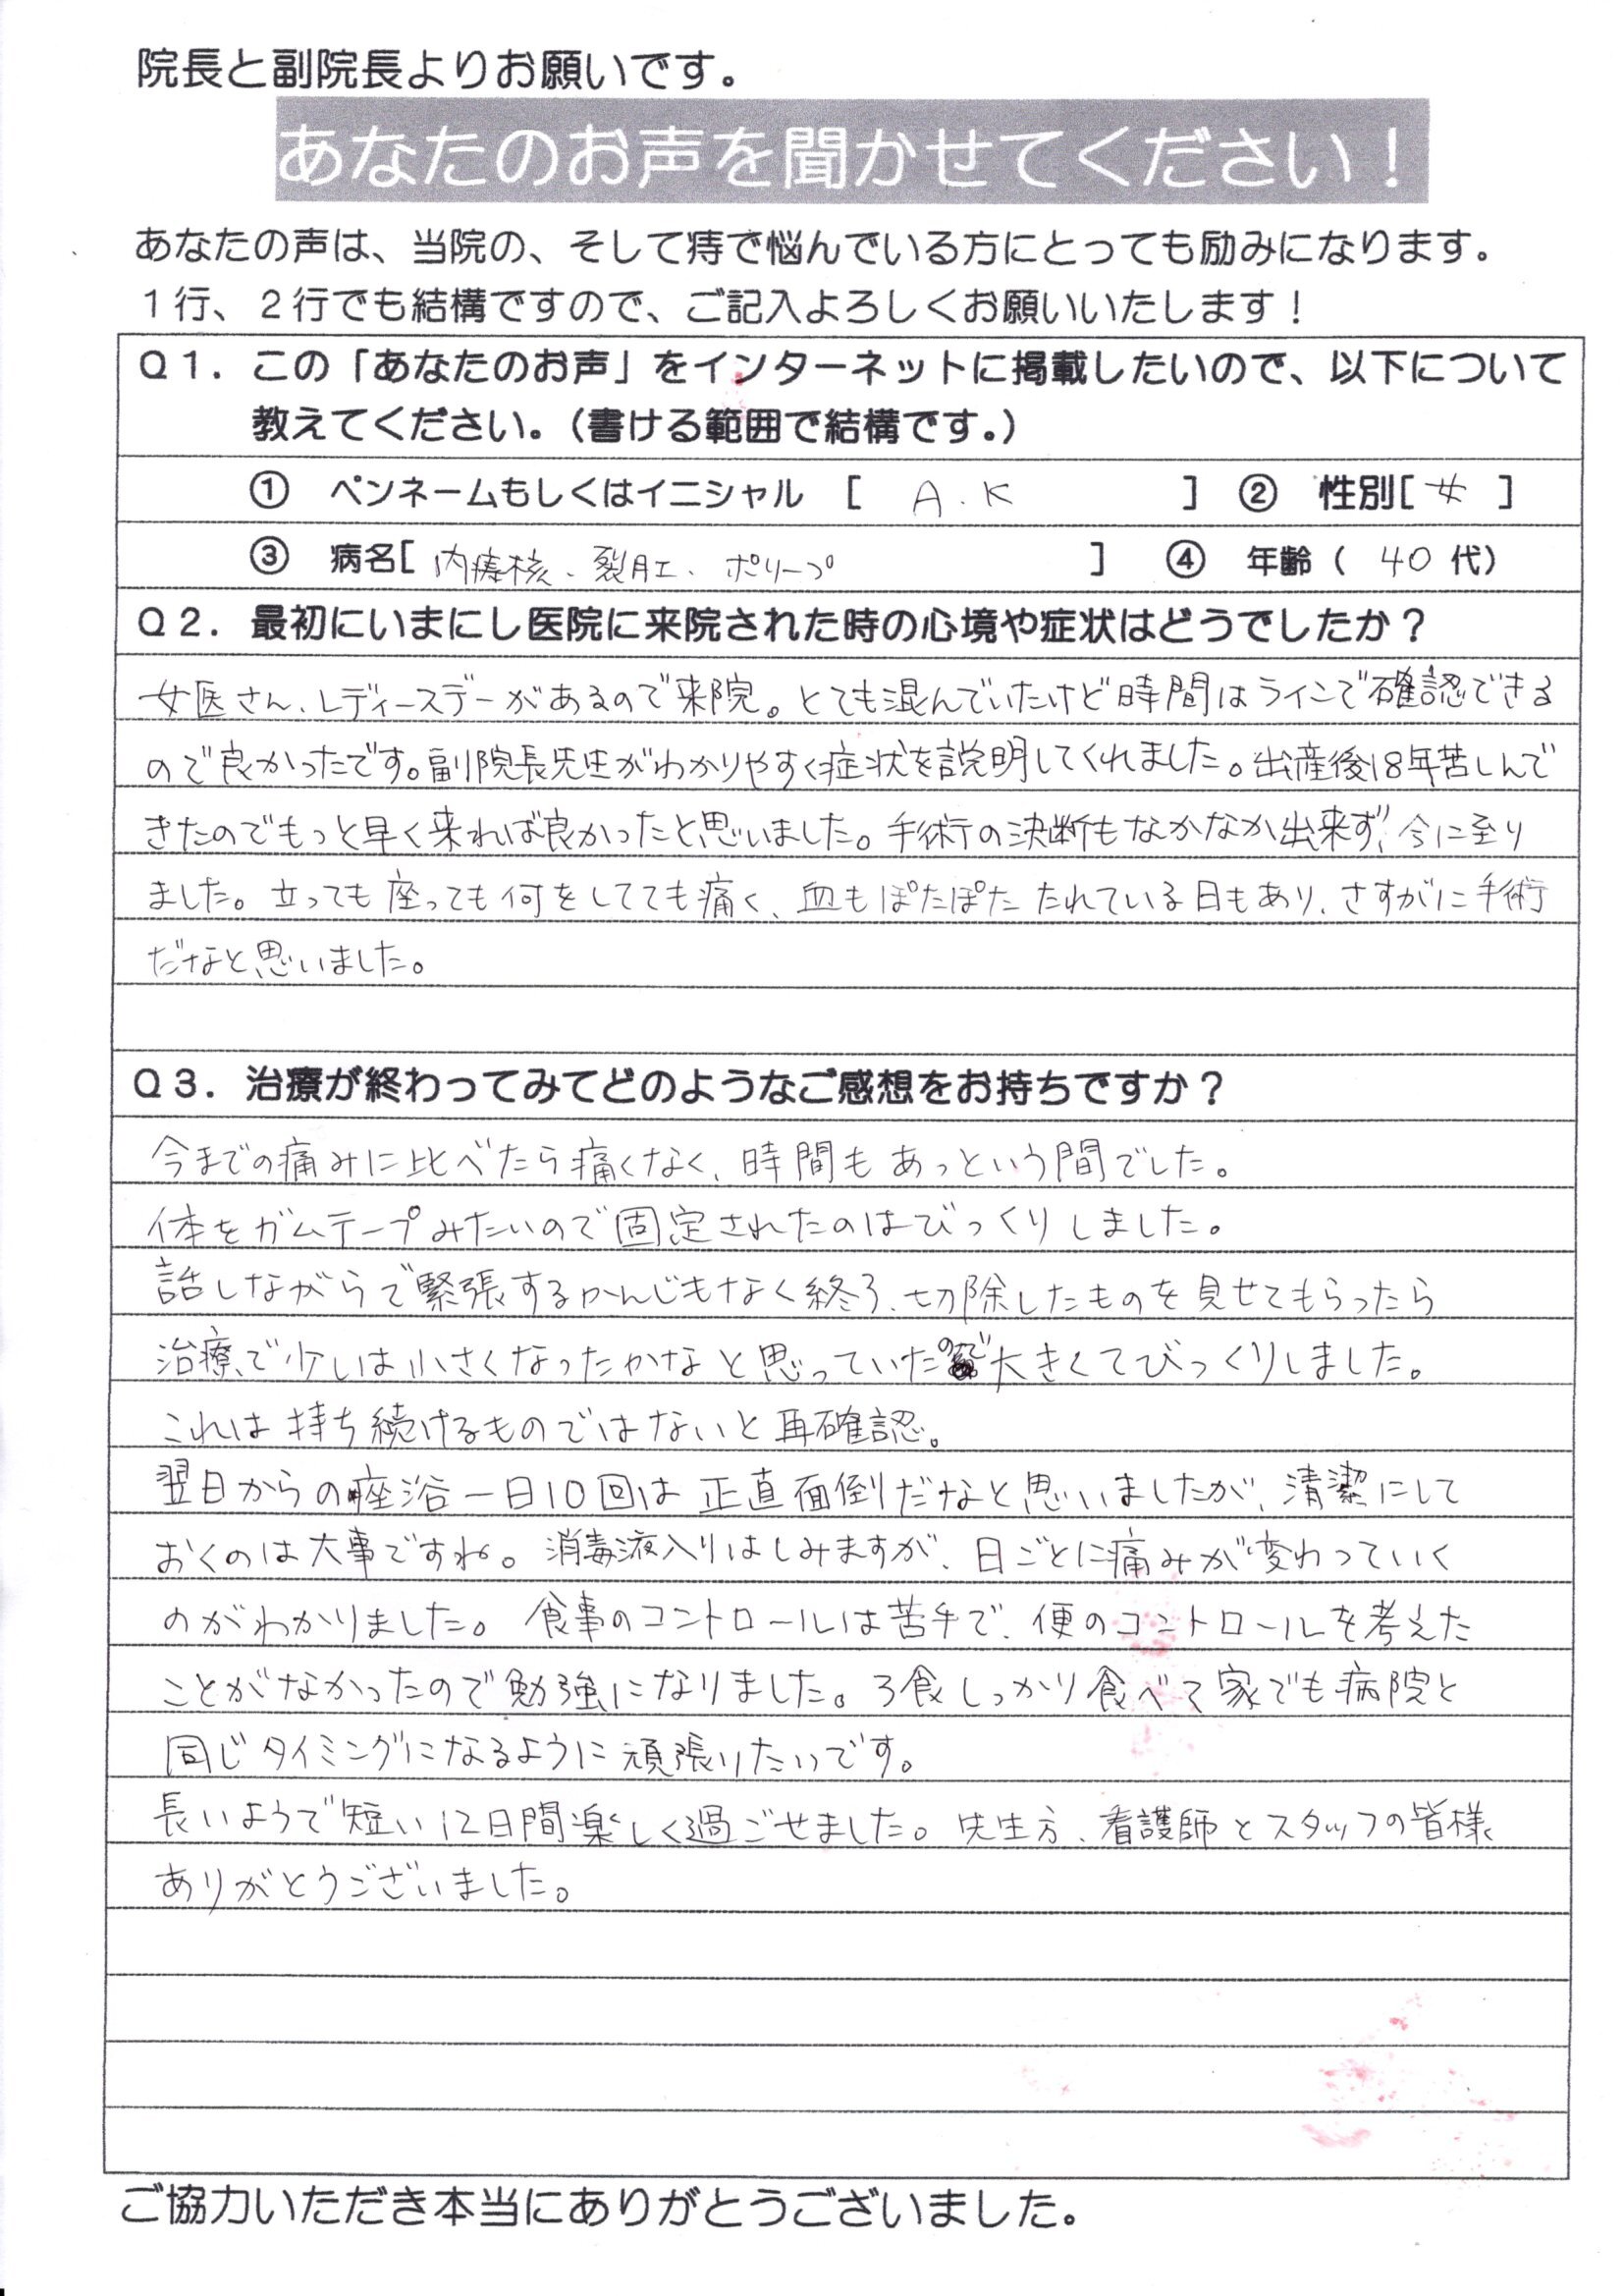 院長と副院長よりお願いです。
あなたのお声を聞かせてください！
あなたの声は、当院の、そして痔で悩んでいる方にとっても励みになります。
１行、２行でも結構ですので、ご記入よろしくお願いいたします！
Ｑ１．この「あなたのお声」をインターネットに掲載したいので、以下について
教えてください。（書ける範囲で結構です。）
① ペンネームもしくはイニシャル [ A.K ] ② 性別[ 女 ]
③ 病名[ 内痔核、裂肛、ポリープ ] ④ 年齢（ 40 代）
Ｑ２．最初にいまにし医院に来院された時の心境や症状はどうでしたか？
女医さん、レディースデーがあるので来院。とても混んでいたけど時間はラインで確認できる
ので良かったです。副院長先生がわかりやすく症状を説明してくれました。出産後18年苦しんで
きたのでもっと早く来れば良かったと思いました。手術の決断もなかなか出来ず、今に至り
ました。立っても座っても何をしてても痛く、血もぽたぽたたれている日もあり、さすがに手術
だなと思いました。
Ｑ３．治療が終わってみてどのようなご感想をお持ちですか？
今までの痛みに比べたら痛くなく、時間もあっという間でした。
体をガムテープみたいので固定されたのはびっくりしました。
話しながらで緊張するかんじもなく終る、切除したものを見せてもらったら
治療で少しは小さくなったかなと思っていたので大きくてびっくりしました。
これは持ち続けるものではないと再確認。
翌日からの座浴一日10回は正直面倒だなと思いましたが、清潔にして
おくのは大事ですね。消毒液入りはしみますが、日ごとに痛みが変わっていく
のがわかりました。食事のコントロールは苦手で、便のコントロールを考えた
ことがなかったので勉強になりました。3食しっかり食べて家でも病院と
同じタイミングになるように頑張りたいです。
長いようで短い12日間楽しく過ごせました。先生方、看護師とスタッフの皆様
ありがとうございました。
ご協力いただき本当にありがとうございました。